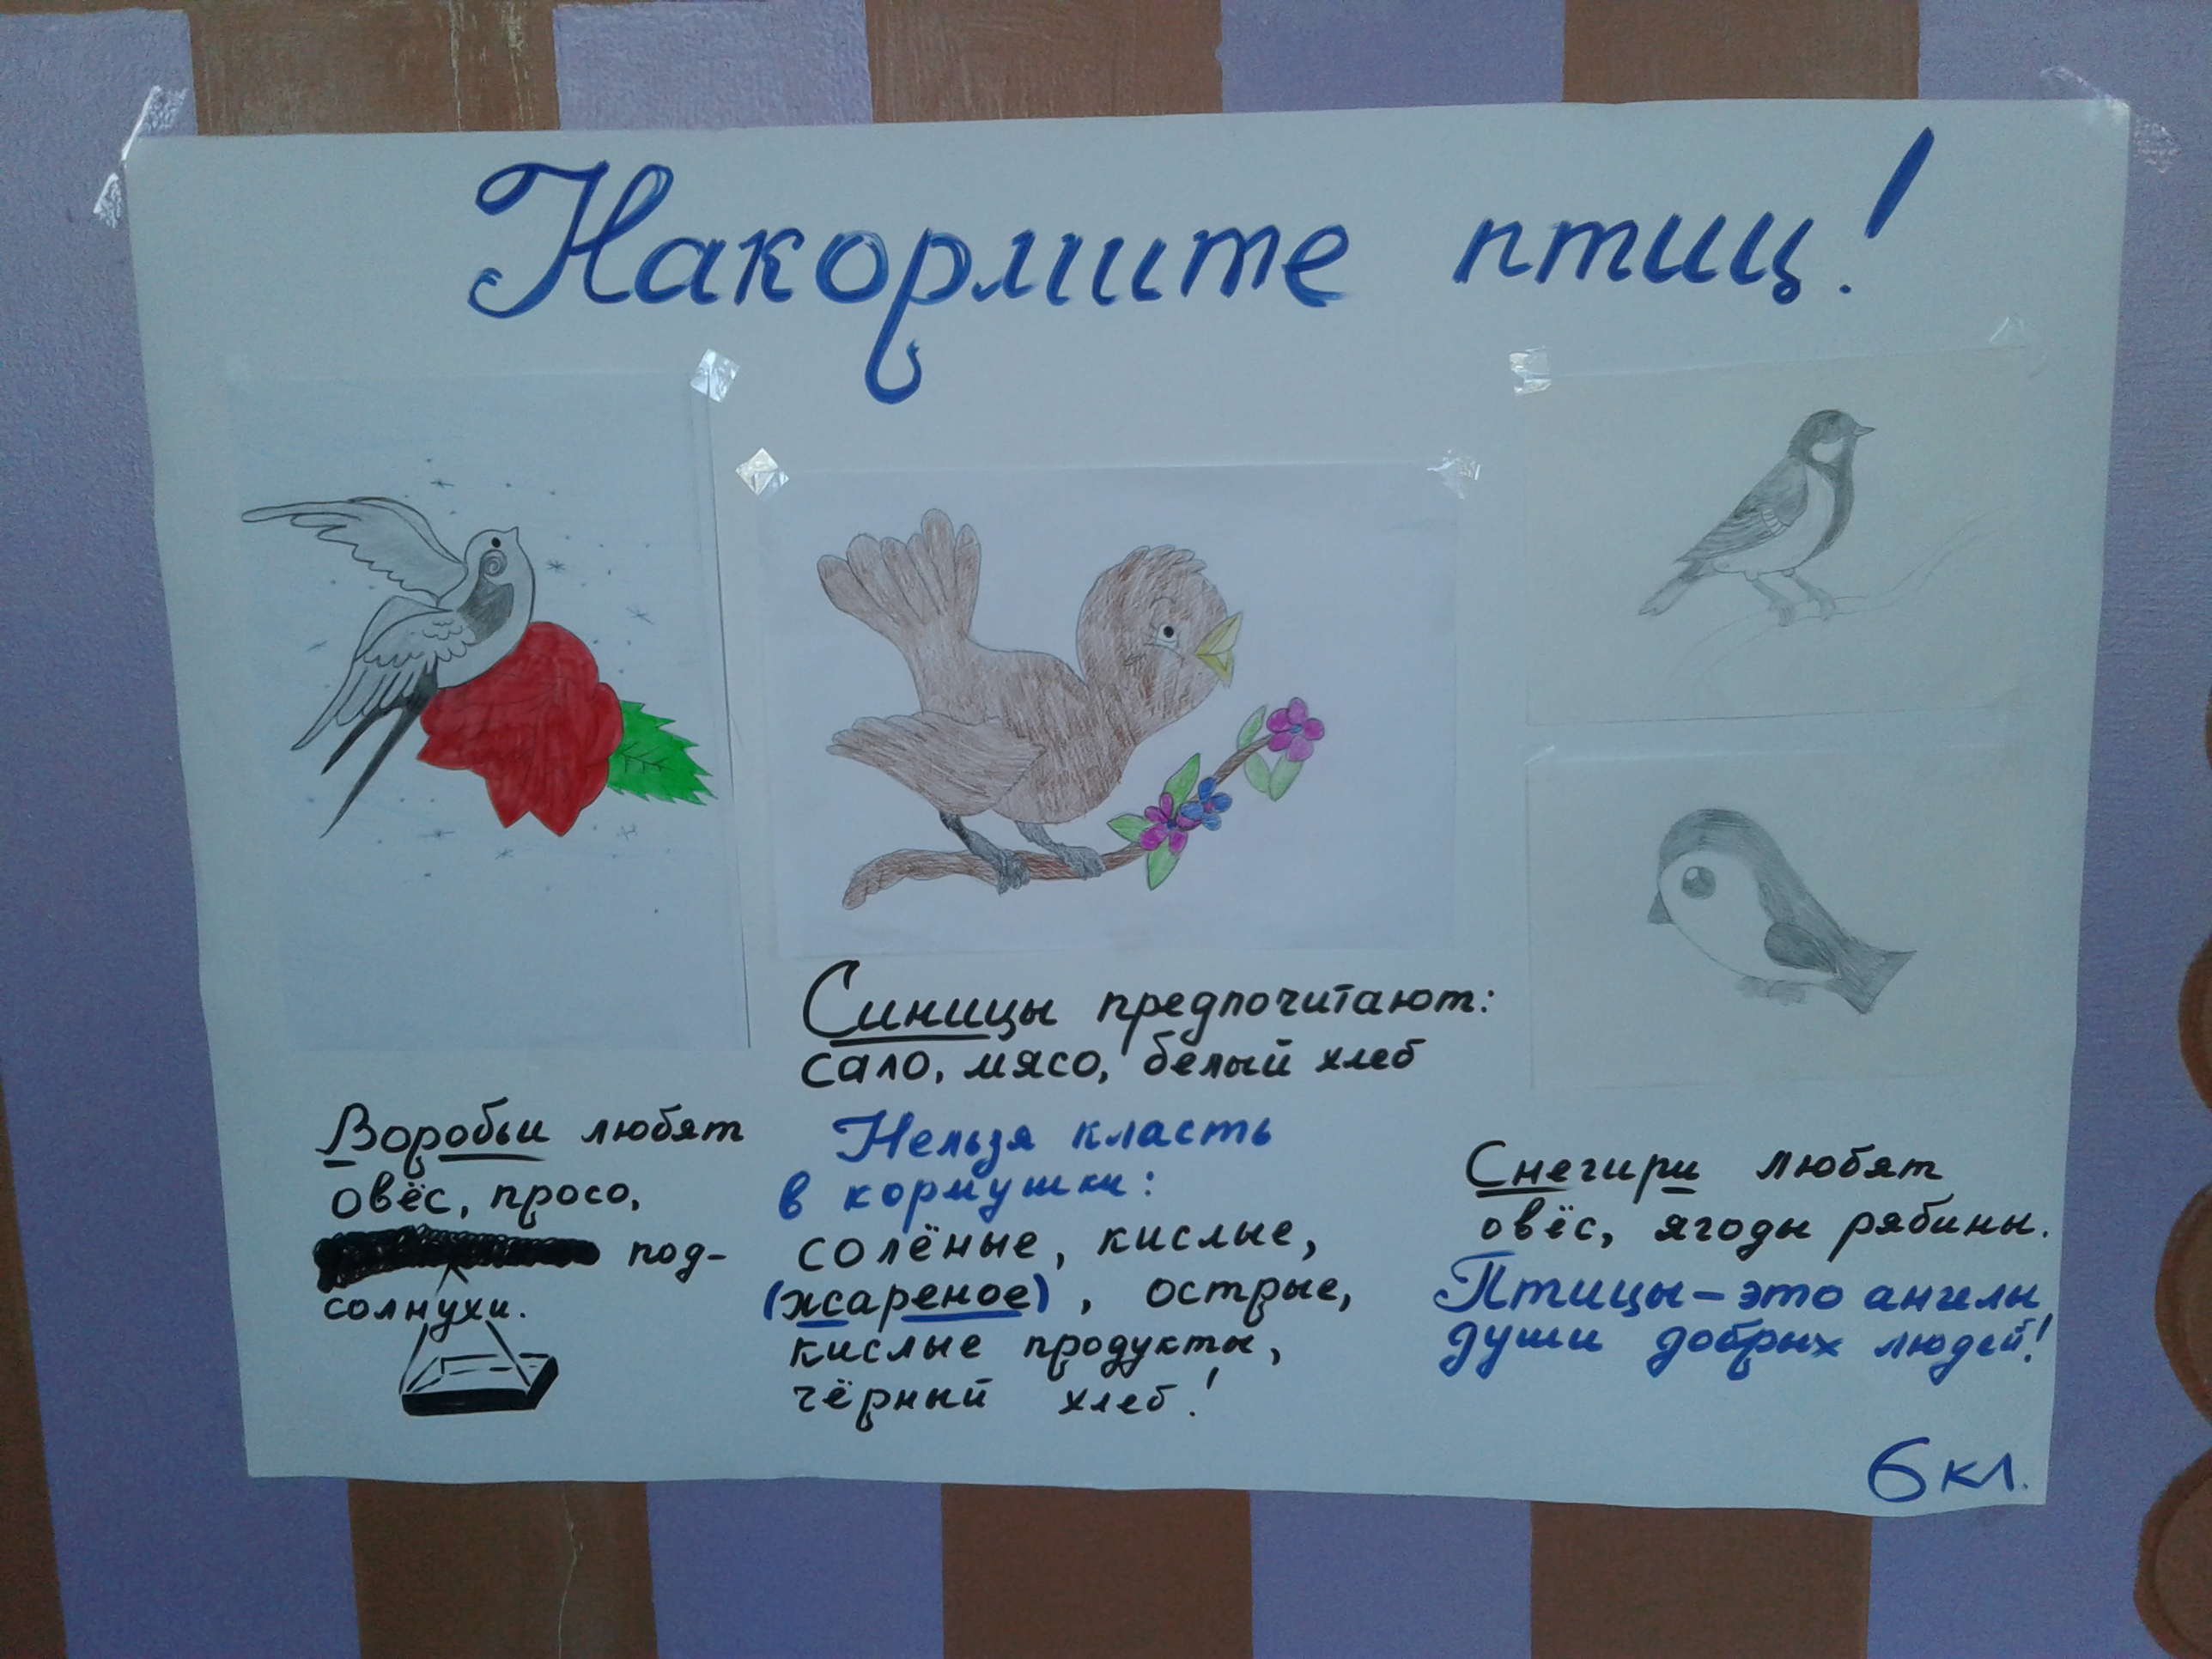 Накормите птиц!
Воробьи любят
овёс, просо,
под-
солнухи.
Синицы предпочитают:
сало, мясо, белый хлеб
Нельзя класть
в кормушки:
солёные, кислые,
(жареное), острые,
кислые продукты,
чёрный хлеб!
Снегири любят
овёс, ягоды рябины.
Птицы – это ангелы
души добрых людей!
6 кл.